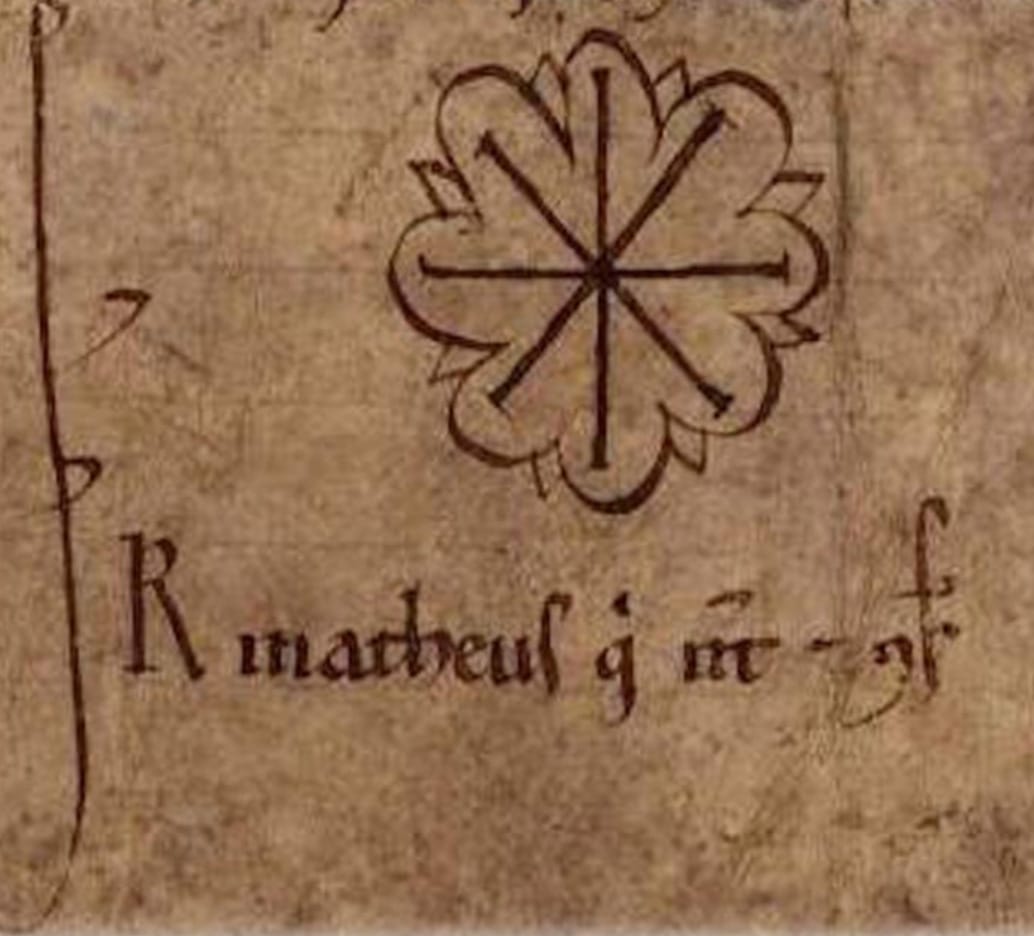 R matheuſ q̇ m̅t